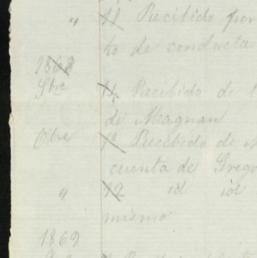 " 11 Recibido por
to de conducta
1868
Sbre 14 Recibido de
de Magnan
Obre 1º Recibido de
cuenta de Greg
" 12 id id
mismo
1869